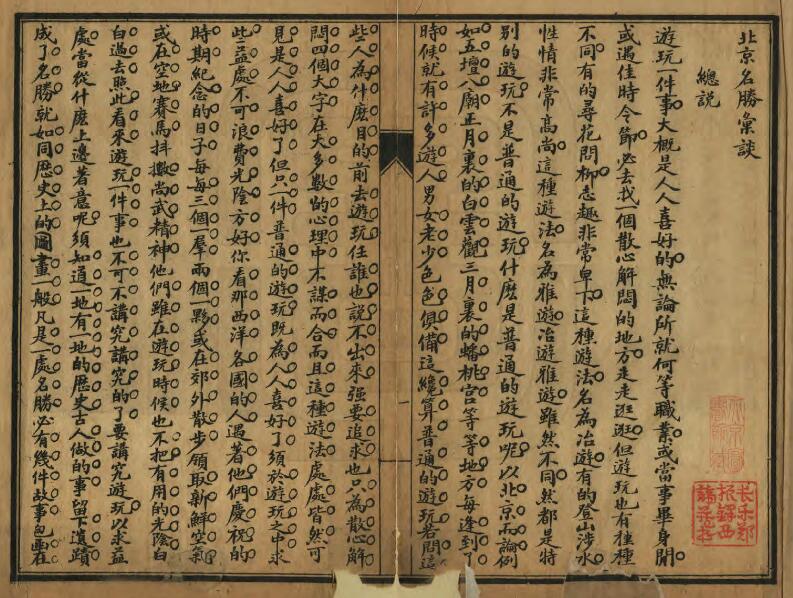 北京名勝彙談
總説
遊玩一件事大概是人人喜好的無論所就何等職業或當事畢身閒
或遇佳時令節必去找一個散心解悶的地方走走逛逛但遊玩也有種種
不同有的尋花問柳志趣非常卑下這種遊法名為冶遊有的登山涉水
性情非常髙尚這種遊法名為雅遊冶遊雅遊雖然不同然都是特
別的遊玩不是普通的遊玩什麽是普通的遊玩呢以北京而論例
如五壇八廟正月裏的白雲觀三月裏的蟠桃宫等等地方每逢到了
時候就有許多遊人男女老少色色俱備這纔算普通的遊玩若問這
些人為什麽目的前去遊玩任誰也説不出來强要追求也只為散心解
悶四個大字在大多數的心理中不謀而合而且這種遊法處處皆然可
見是人人喜好了但只一件普通的遊玩既為人人喜好了須於遊玩之中求
些益處不可浪費光陰方好你看那西洋各國的人遇著他們慶祝的
時期紀念的日子每每三個一羣兩個一夥或在郊外散步領取新鮮空氣
或在空地賽馬抖擻尚武精神他們雖在遊玩時候也不把有用的光陰白
白過去照此看來遊玩一件事也不可不講究講究的了要講究遊玩以求益
處當從什麽上邊著意呢須知道一地有一地的歷史古人做的事留下遺蹟
成了名勝就如同歷史上的圖畫一般凡是一處名勝必有幾件故事包在
长乐郑
振铎西
諦藏書